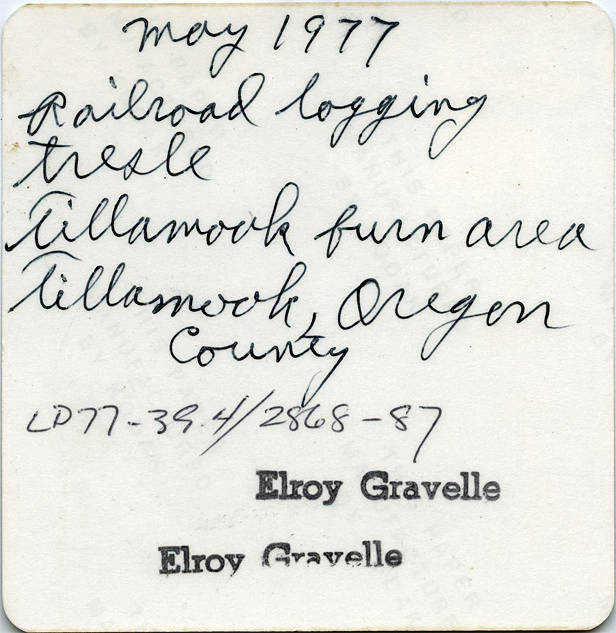 May 1977
Railroad logging
tresle
Tillamook burn area
Tillamook, Oregon
County
LD77-39.4/2868-87
Elroy Gravelle
Elroy Gravelle